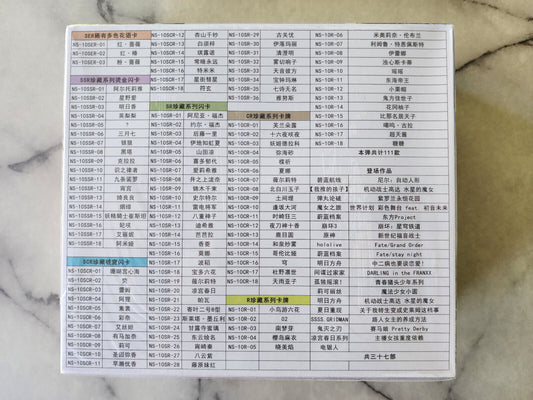 SER稀有多色花语卡
NS-10SER-01 红·蔷薇
NS-10SER-02 红·椿
NS-10SER-03 粉·蔷薇
SSR珍藏系列烫金闪卡
NS-10SSR-01 阿尔托莉雅
NS-10SSR-02 星野爱
NS-10SSR-03 明日香
NS-10SSR-04 英梨梨
NS-10SSR-05
NS-10SSR-06 三月七
NS-10SSR-07 银狼
NS-10SSR-08 黑猫
NS-10SSR-09 克拉拉
NS-10SSR-10 识之律者
NS-10SSR-11 九条裟罗
NS-10SSR-12 宵宫
NS-10SSR-13 绮良良
NS-10SSR-14
NS-10SSR-15 妖精骑士崔斯坦
NS-10SSR-16 妃咲
NS-10SSR-17 艾丽妮
NS-10SSR-18 阿米娅
SCR珍藏镭窗闪卡
NS-10SCR-01 珊瑚宫心海
NS-10SCR-02 荧
NS-10SCR-03 雷姆
NS-10SCR-04 阿狸
NS-10SCR-05 重囊
NS-10SCR-06 彩叶
NS-10SCR-07 艾丝妲
NS-10SCR-08 有马加奈
NS-10SCR-09 莉可
NS-10SCR-10 圣迦娅
NS-10SCR-11 苹濑优香
NS-10SCR-12 杏山千纱
NS-10SCR-13 白须梓
NS-10SCR-14 琪露诺
NS-10SCR-15 常暗永远
NS-10SCR-16 特米米
NS-10SCR-17 星街彗星
NS-10SCR-18 符玄
SR珍藏系列闪卡
NS-10SR-01 阿尼亚·福杰
NS-10SR-02 约尔·福杰
NS-10SR-03 后藤一里
NS-10SR-04 伊地知虹夏
NS-10SR-05 山田凉
NS-10SR-06 喜多郁代
NS-10SR-07 爱莉希雅
NS-10SR-08 井之上泷奈
NS-10SR-09 锦木千束
NS-10SR-10 史尔特尔
NS-10SR-11 雷电将军
NS-10SR-12 八重神子
NS-10SR-13 迪希雅
NS-10SR-14 芭芭拉
NS-10SR-15 香菱
NS-10SR-16 莫娜
NS-10SR-17 波稻
NS-10SR-18 宝多六花
NS-10SR-19 薇尔莉特
NS-10SR-20 凉宫春日
NS-10SR-21 帕瓦
NS-10SR-22 寄叶二号B型
NS-10SR-23 斯莱塔·墨丘利
NS-10SR-24 甘露寺蜜璃
NS-10SR-25 东云绘名
NS-10SR-26 宵崎奏
NS-10SR-27 八云紫
NS-10SR-28 藤原妹红
NS-10SR-29 古关优
NS-10SR-30 伊落玛丽
NS-10SR-31 清澄明
NS-10SR-32 雾切响子
NS-10SR-33 天音彼方
NS-10SR-34 宝钟玛琳
NS-10SR-35 七诗无名
NS-10SR-36 雅努斯
CR珍藏系列卡牌
NS-10CR-01 芙兰朵露
NS-10CR-02 十六夜咲夜
NS-10CR-03 妖姬德拉科
NS-10CR-04 弥海砂
NS-10CR-05 樱祈
NS-10CR-06 夏娜
NS-10CR-07 薇尔莉特
NS-10CR-08 北白川玉子
NS-10CR-09 土间埋
NS-10CR-10 逢坂大河
NS-10CR-11 时崎狂三
NS-10CR-12 夜刀神十香
NS-10CR-13 鹿目圆
NS-10CR-14 和泉纱雾
NS-10CR-15 哥伦比娅
NS-10CR-16 穹
NS-10CR-17 杜野凛世
NS-10CR-18 莲
R珍藏系列卡牌
NS-10R-01 小鸟游六花
NS-10R-02 02
NS-10R-03 南梦芽
NS-10R-04 樱岛麻衣
NS-10R-05 晓美焰
NS-10R-06 米奥莉奈·伦布兰
NS-10R-07 利姆鲁·特恩佩斯特
NS-10R-08 伊蕾娜
NS-10R-09 浊心斯卡蒂
NS-10R-10 瑶瑶
NS-10R-11 东海帝王
NS-10R-12 小栗帽
NS-10R-13 鬼方佳世子
NS-10R-14 花冈柚子
NS-10R-15 比那名居天子
NS-10R-16 噶呜·古拉
NS-10R-17 超天酱
NS-10R-18 糖糖
本弹共计111款
登场作品
碧蓝航线 尼尔：自动人形
【我推的孩子】 机动战士高达 水星的魔女
弹丸论破 紫罗兰永恒花园
魔女之旅 世界计划 彩色舞台 feat 初音未来
蔚蓝档案 东方Project
崩坏3 崩坏：星穹铁道
原神 新世纪福音战士
hololive Fate/Grand Order
蔚蓝档案 Fate/stay night
明日方舟 中二病也要谈恋爱！
间谍过家家 DARLING in the FRANXX
孤独摇滚！ 青春猪头少年系列
莉可丽丝 魔法少女小圆
明日方舟 机动战士高达 水星的魔女
夏日重现 关于我转生变成史莱姆这档事
SSSS.GRIDMAN 路人女主的养成方法
鬼灭之刃 赛马娘 Pretty Derby
凉宫春日系列 主播女孩重度依赖
电锯人
共三十七部